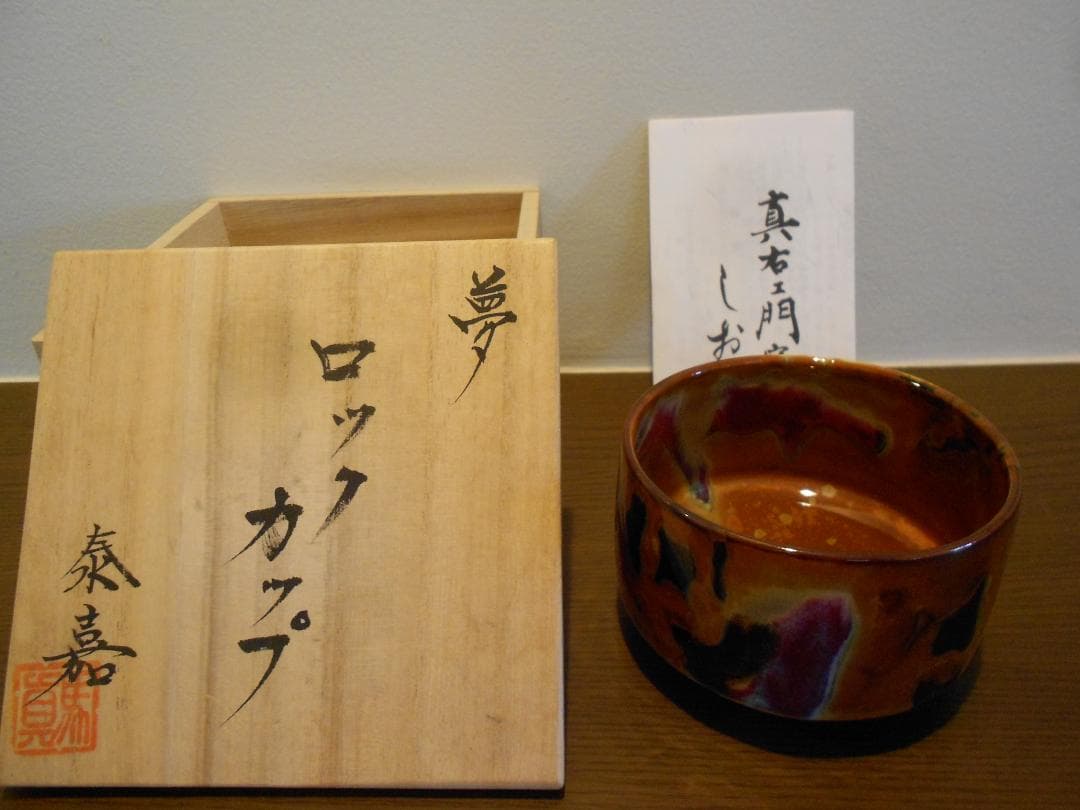 夢
ロック
カップ
泰嘉
真右ェ門窯
しお